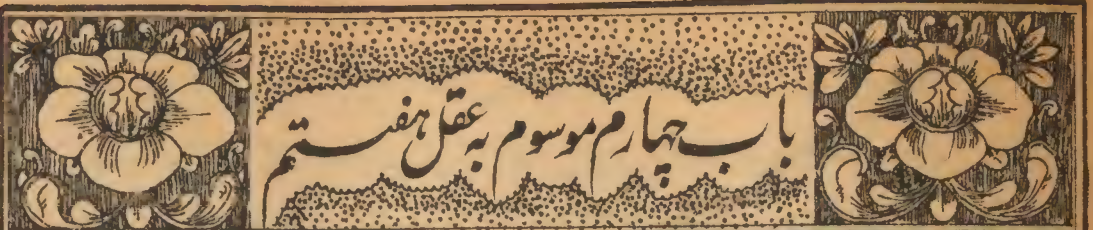 باب چهارم موسوم به عقل هفتم